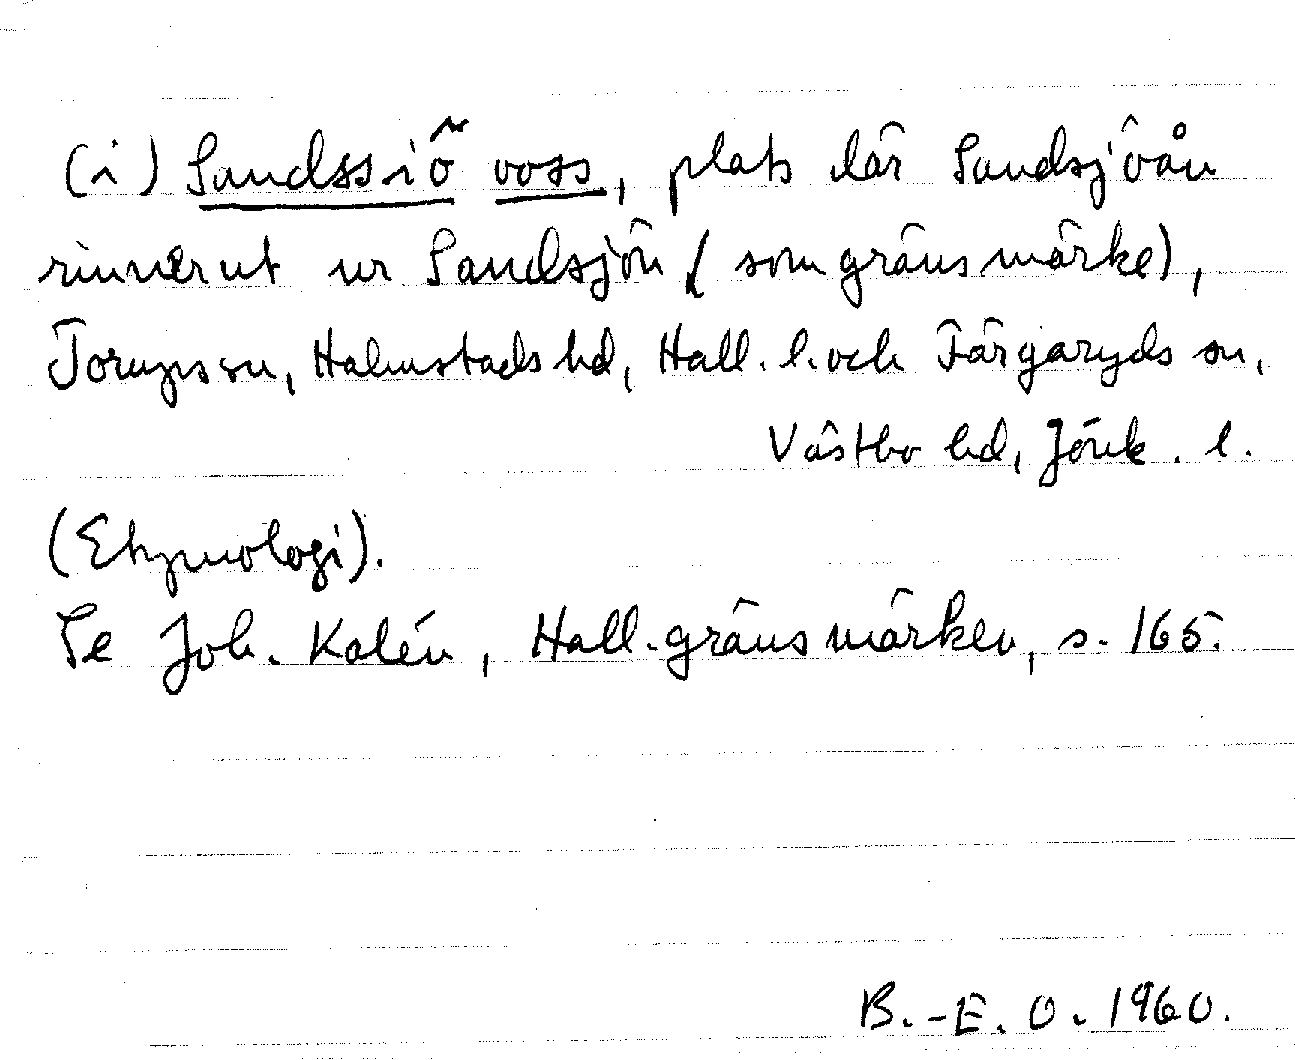 (i) Sandssiö voss, plats där Sandsjöån
rinner ut ur Sandsjön (som gränsmärke),
Torups sn, Halmstads hd, Hall. l. och Färgaryds sn,
Västbo hd, Jönk. l.
(Etymologi).
Se Joh. Kalén, Hall. gränsmärken, s. 165.
B.-E. O. 1960.